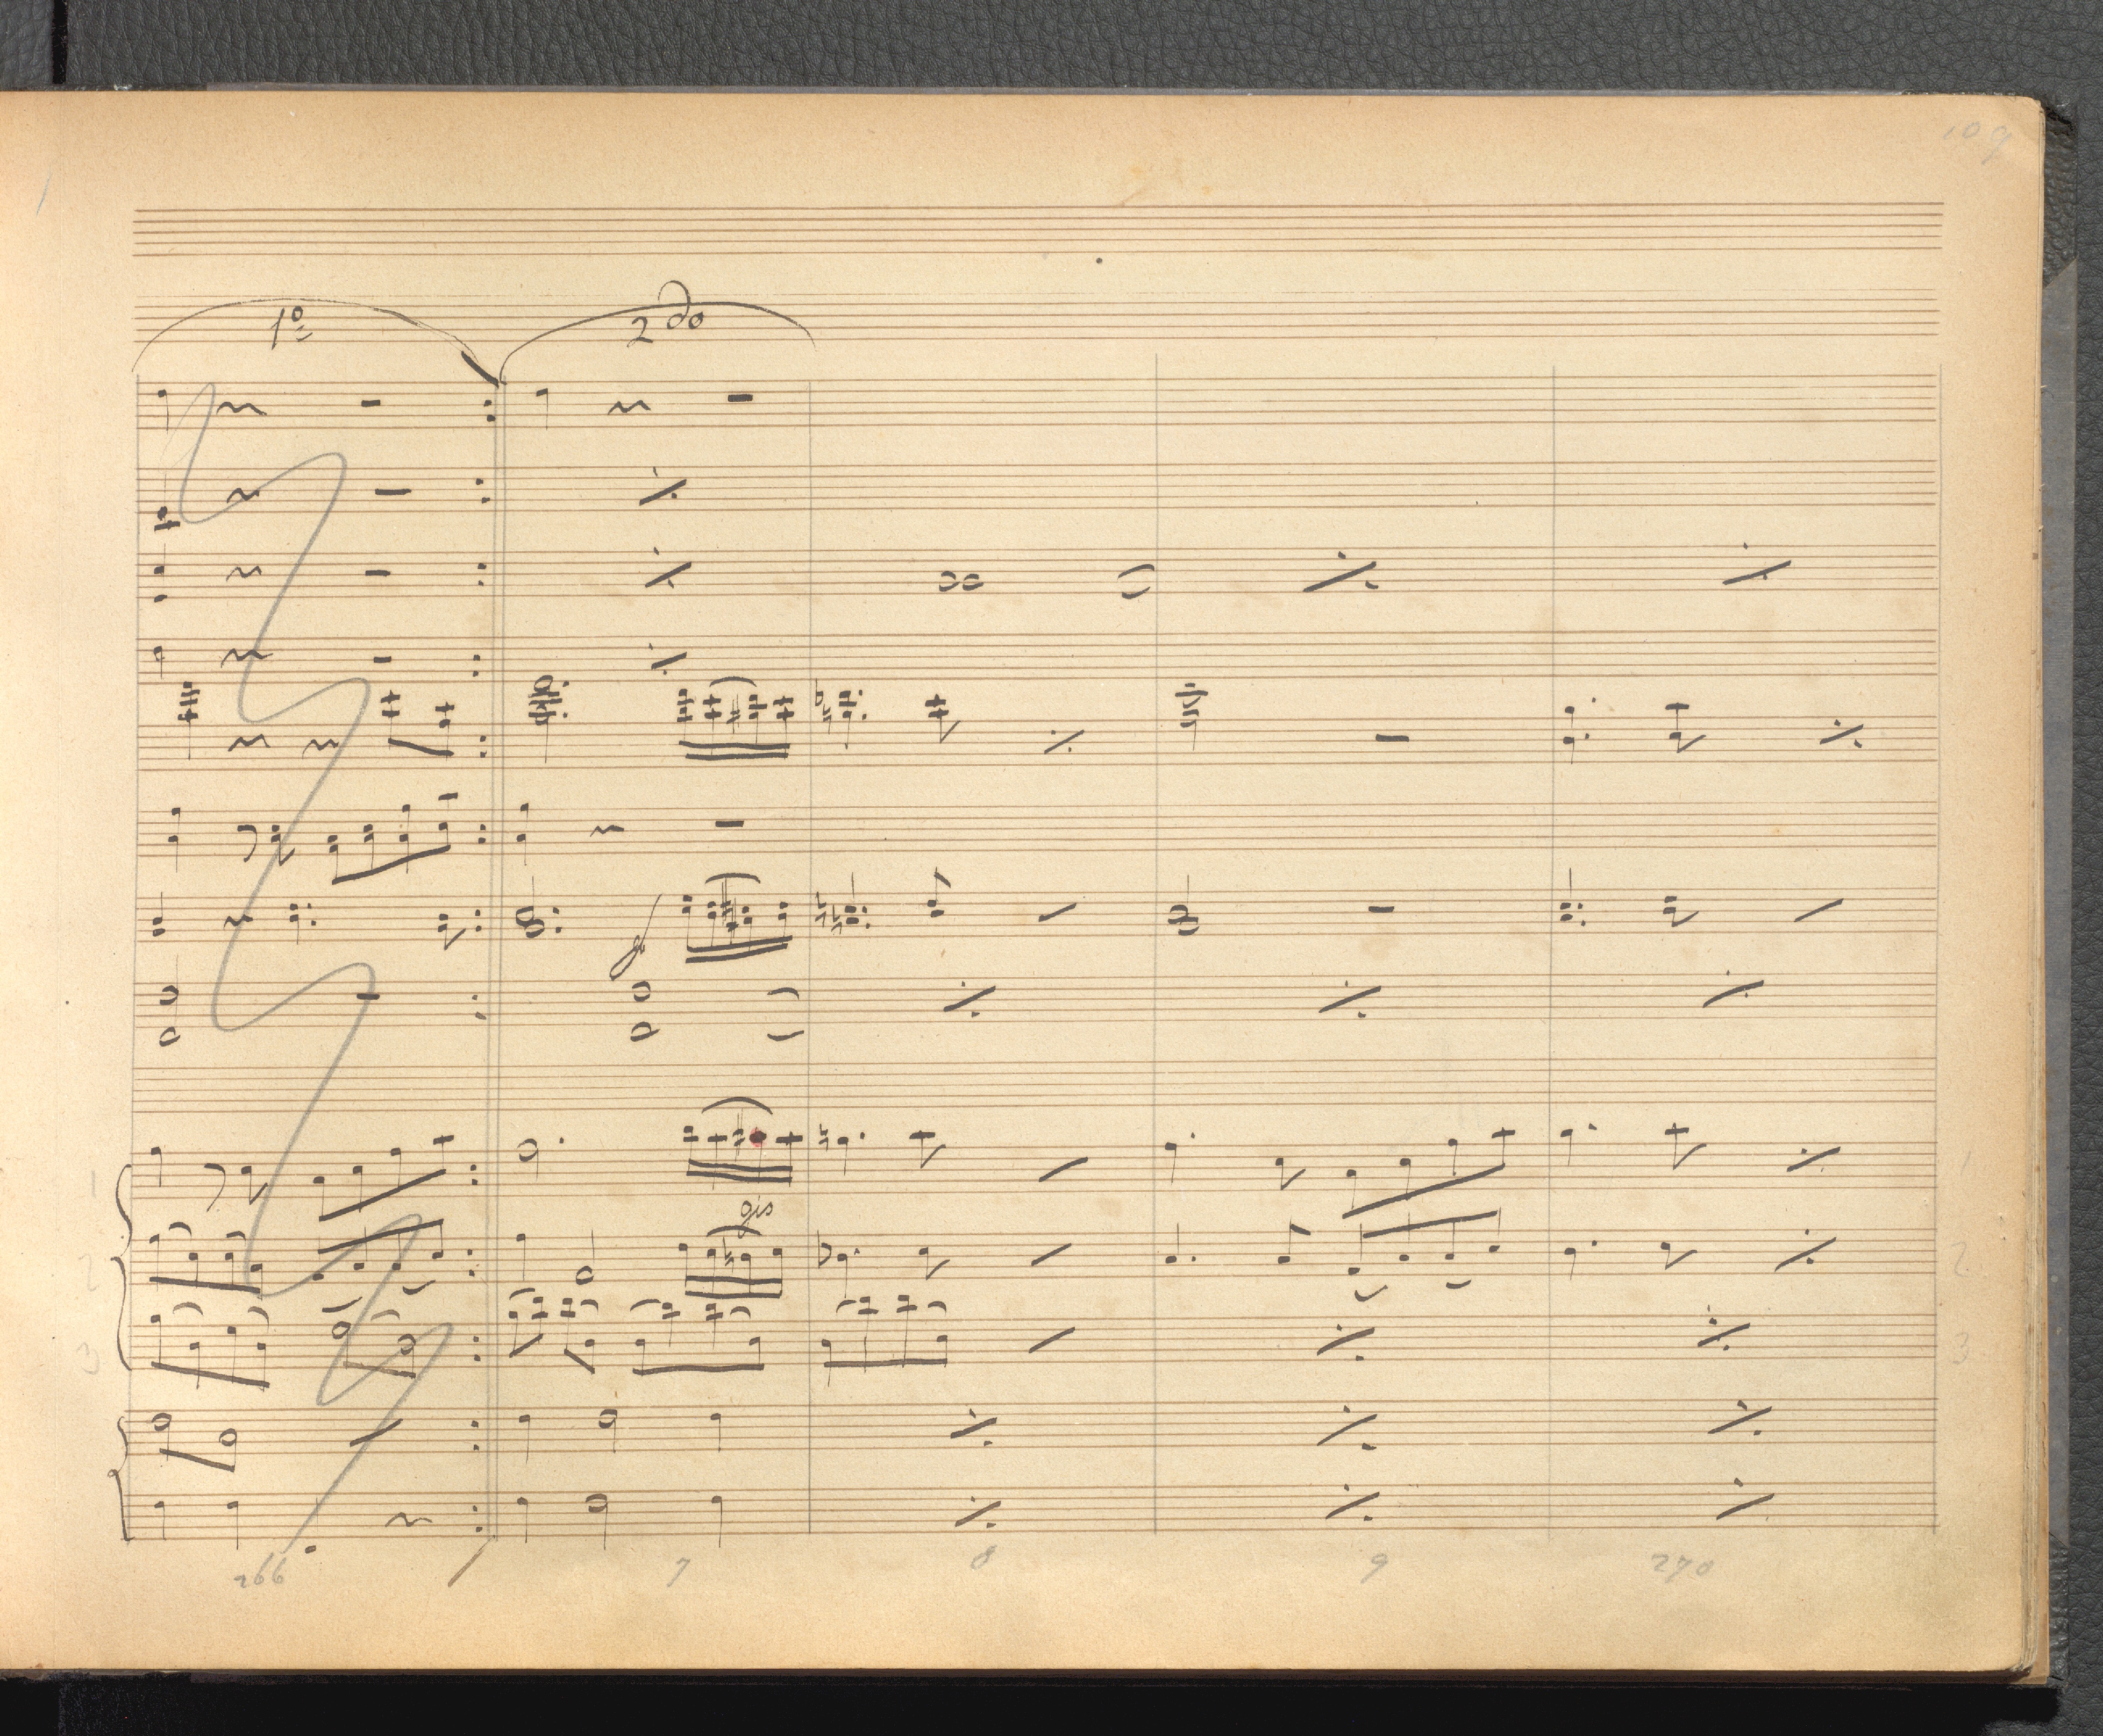 109
1º
2do
gis
1 1
2 2
3 3
266 7 8 9 270